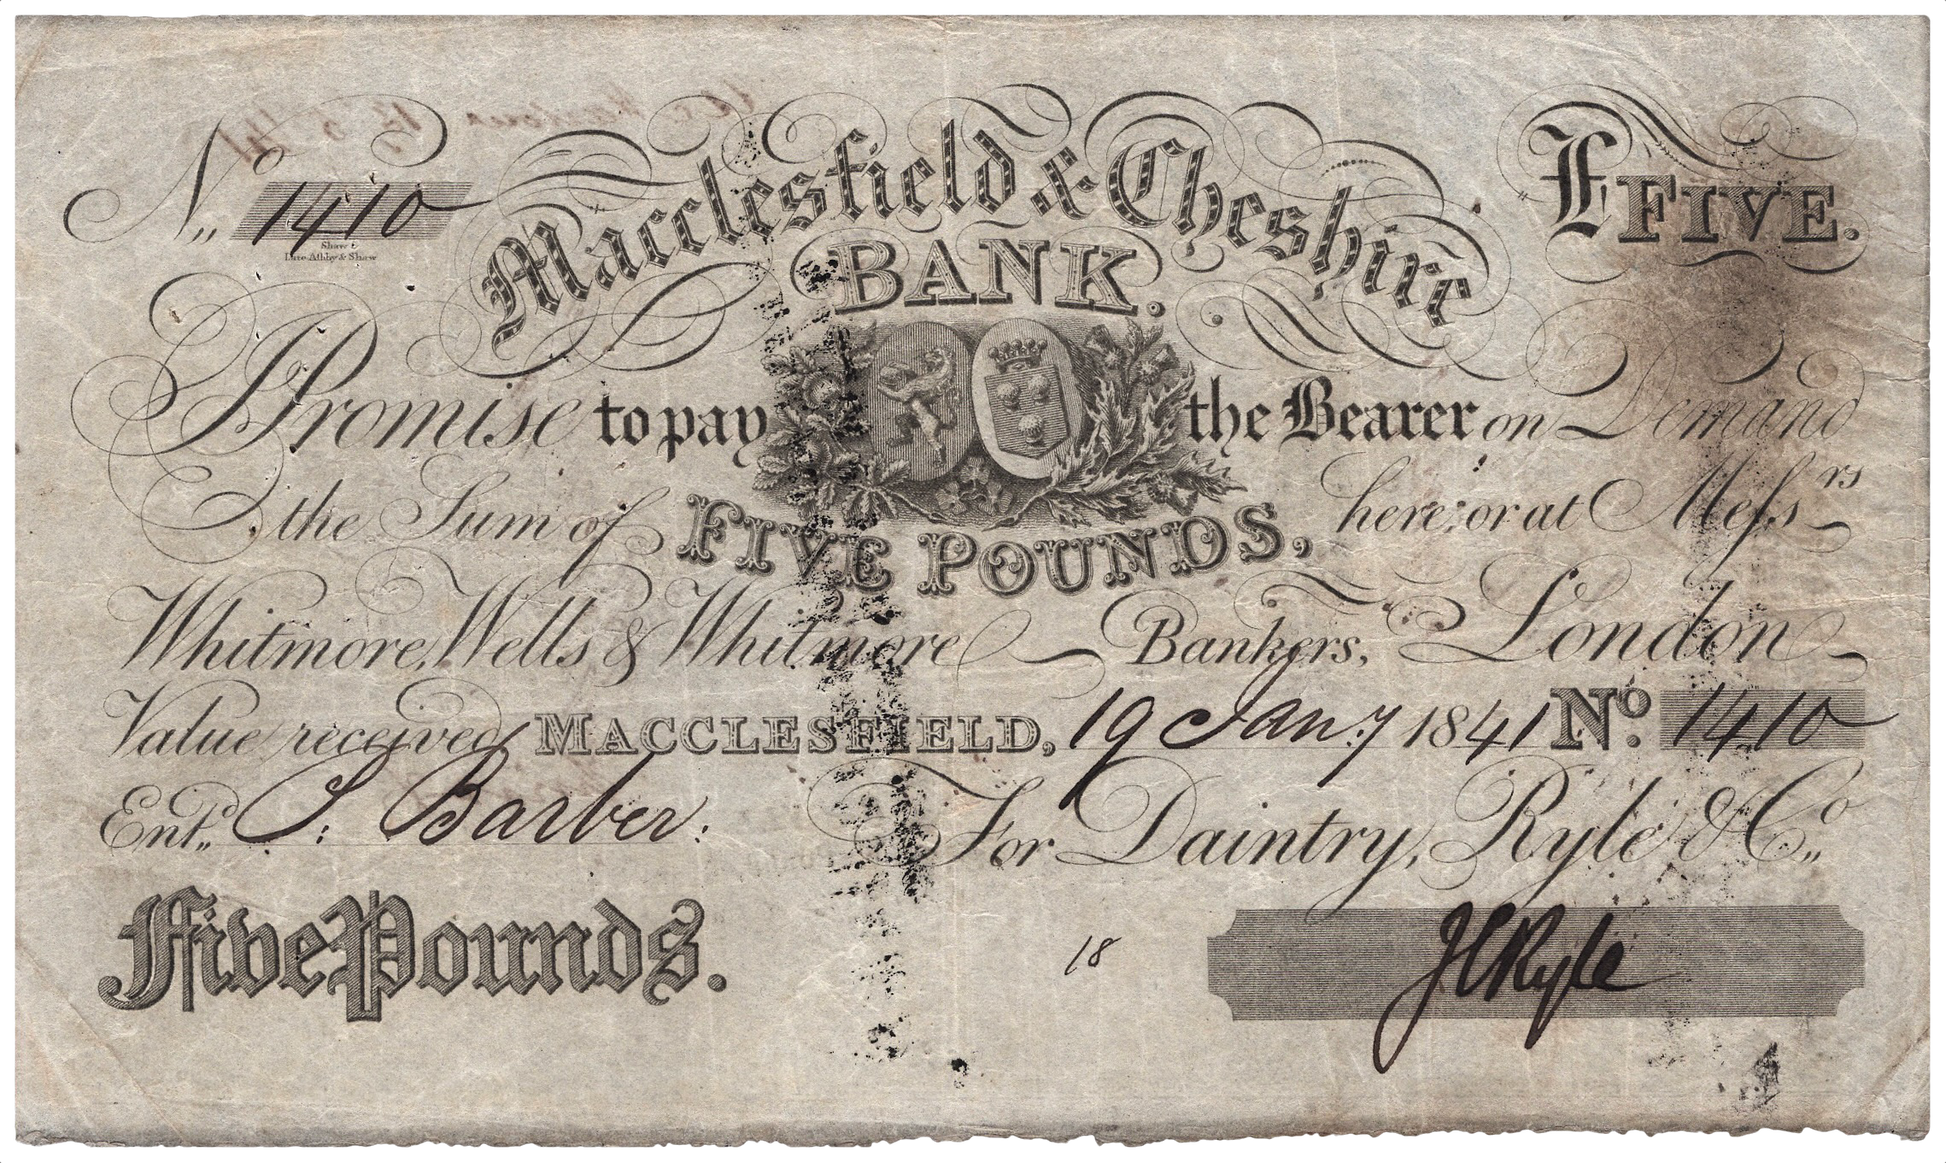 No 1410
Macclesfield & Cheshire
BANK.
£FIVE.
Shaw
Late Ashby & Shaw
I Promise to pay the Bearer on Demand
the Sum of FIVE POUNDS, here; or at Messrs
Whitmore, Wells & Whitmore Bankers, London
Value received MACCLESFIELD, 19 Jany 1841 No. 1410
Entd. S: Barber.
For Daintry, Ryle & Co.
Five Pounds.
18
JCRyle